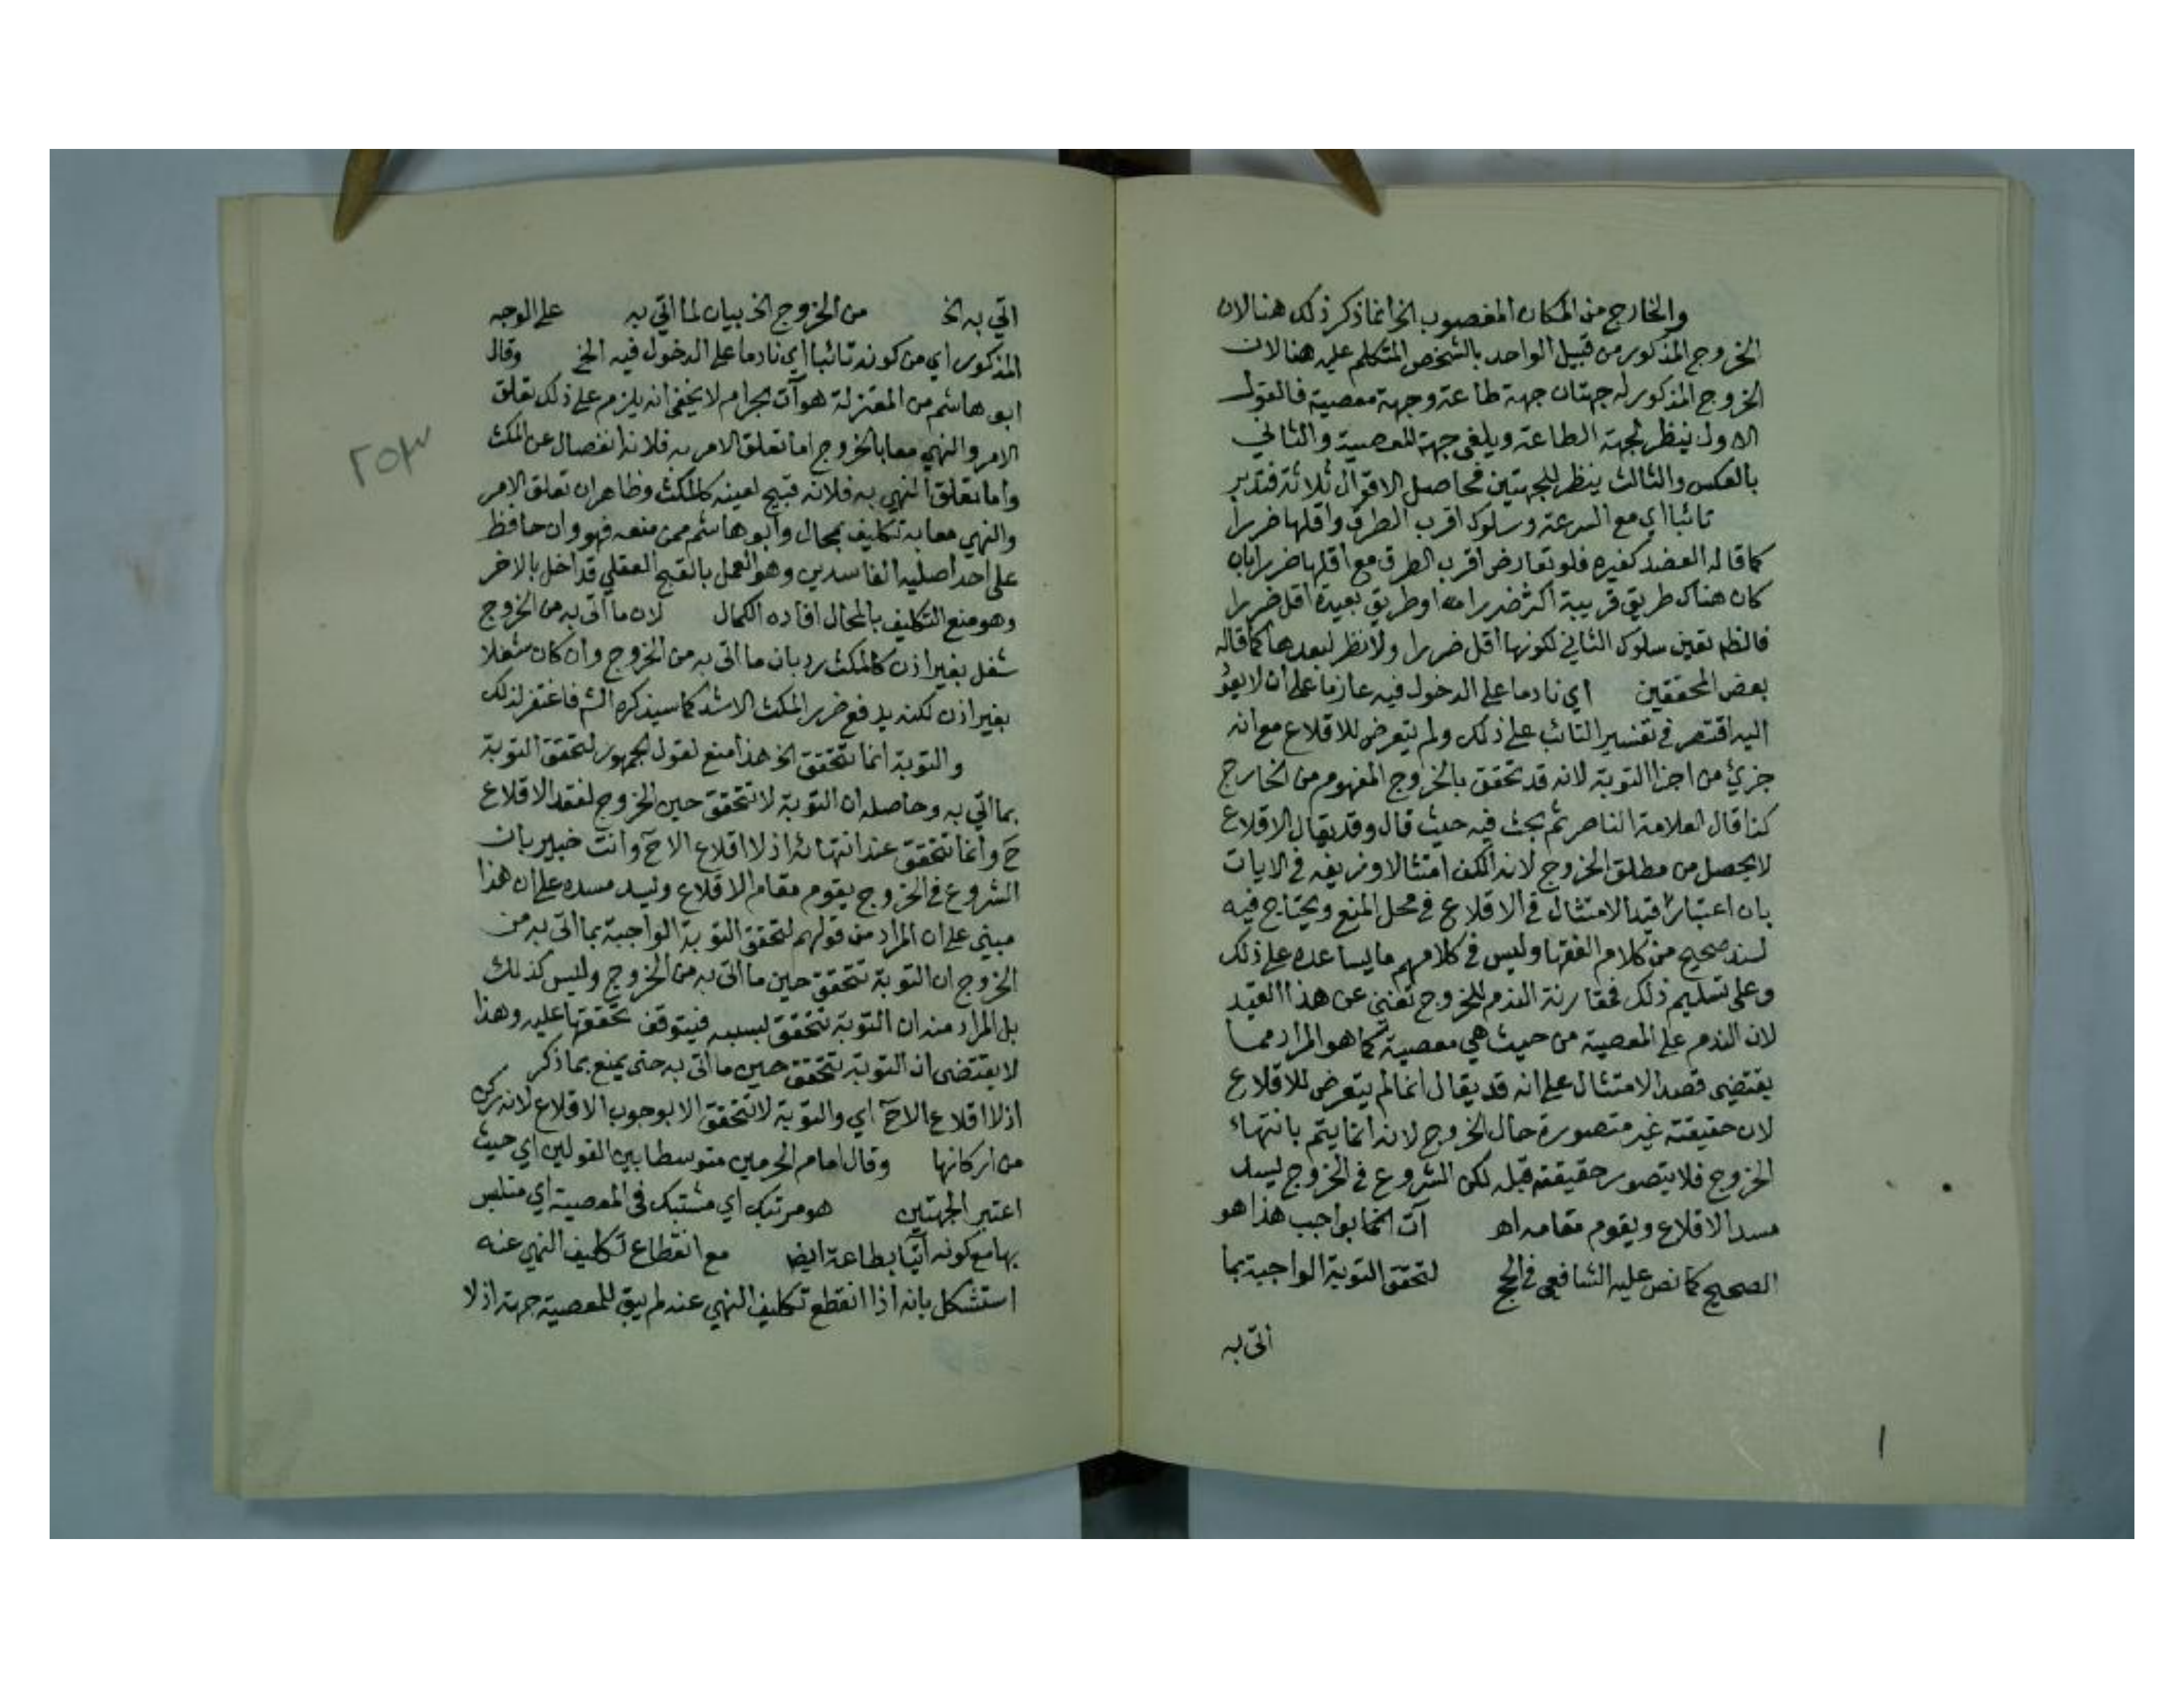 والخارج من المكان المغصوب الخ انما ذكر ذلك هنا لان
الخروج المذكور من قبيل الواحد بالشخص المتكلم عليه هنا لان
الخروج المذكور له جهتان جهة طاعة وجهة معصية فالقول
الاول ينظر لجهة الطاعة ويلغي جهة المعصية والثاني
بالعكس والثالث ينظر للجهتين فحاصل الاقوال ثلاثة فتدبر
تائبا اي مع السرعة وسلوك اقرب الطرق واقلها ضررا
كما قاله العضد كغيره فلو تعارض اقرب الطرق مع اقلها ضررا بان
كان هناك طريق قريبة اكثر ضررا منه او طريق بعيدة اقل ضررا
فالظم تعين سلوك الثاني لكونها اقل ضررا ولا نظر لبعدها كما قاله
بعض المحققين اي نادما على الدخول فيه عازما على ان لا يعود
اليه اقتصر في تفسير التائب على ذلك ولم يتعرض للاقلاع مع انه
جزئ من اجزا التوبة لانه قد تحقق بالخروج المفهوم من الخارج
كذا قال العلامة الناصر ثم بحث فيه حيث قال وقد يقال الاقلاع
لا يحصل من مطلق الخروج لانه الكف امتثالا وزيفه في الايات
بان اعتبار قيد الامتثال في الاقلاع في محل المنع ويحتاج فيه
لسند صحيح من كلام الفقها وليس في كلامهم ما يساعده على ذلك
وعلى تسليم ذلك فمقارنة الندم للخروج تغني عن هذا القيد
لان الندم على المعصية من حيث هي معصية كما هو المراد مما
يقتضي قصد الامتثال على انه قد يقال انما لم يتعرض للاقلاع
لان حقيقته غير متصورة حال الخروج لانه انما يتم بانتهاء
الخروج فلا يتصور حقيقته قبله لكن الشروع في الخروج ليسد
مسد الاقلاع ويقوم مقامه اهـ آت الخ بواجب هذا هو
الصحيح كما نص عليه الشافعي في الحج لتحقق التوبة الواجبة بما
اتى به
١
اتي به الخ من الخروج الخ بيان لما اتي به على الوجه
المذكور اي من كونه تائبا اي نادما على الدخول فيه الخ وقال
ابو هاشم من المعتزلة هو آت بحرام لا يخفى انه يلزم على ذلك تعلق
الامر والنهي معا بالخروج اما تعلق الامر به فلانه انفصال عن المكث
واما تعلق النهي به فلانه قبيح لعينه كالمكث وظاهر ان تعلق الامر
والنهي معا به تكليف بمحال وابو هاشم ممن منعه فهو وان حافظ
على احد اصليه الفاسدين وهو العمل بالقبح العقلي قد اخل بالاخر
وهو منع التكليف بالمحال افاده الكمال لان ما اتى به من الخروج
شغل بغير اذن كالمكث رد بان ما اتى به من الخروج وان كان شغلا
بغير اذن لكنه يدفع ضرر المكث الاشد كما سيذكره الش فاغتفر لذلك
والتوبة انما تتحقق الخ هذا منع لقول الجمهور لتحقق التوبة
بما اتي به وحاصله ان التوبة لا تتحقق حين الخروج لفقد الاقلاع
ح وانما تتحقق عند انتهائه اذ لا اقلاع الا ح وانت خبير بان
الشروع في الخروج يقوم مقام الاقلاع ويسد مسده على ان هذا
مبني على ان المراد من قولهم لتحقق التوبة الواجبة بما اتى به من
الخروج ان التوبة تتحقق حين ما اتى به من الخروج وليس كذلك
بل المراد منه ان التوبة تتحقق بسببه فيتوقف تحققها عليه وهذا
لا يقتضي ان التوبة تتحقق حين ما اتى به حتى يمنع بما ذكر
اذ لا اقلاع الا ح اي والتوبة لا تتحقق الا بوجوب الاقلاع لانه ركن
من اركانها وقال امام الحرمين متوسطا بين القولين اي حيث
اعتبر الجهتين هو مرتبك اي مشتبك في المعصية اي متلبس
بها مع كونه آتيا بطاعة ايضا مع انقطاع تكليف النهي عنه
استشكل بانه اذا انقطع تكليف النهي عنه لم يبق للمعصية جهة اذ لا
٢٥٣